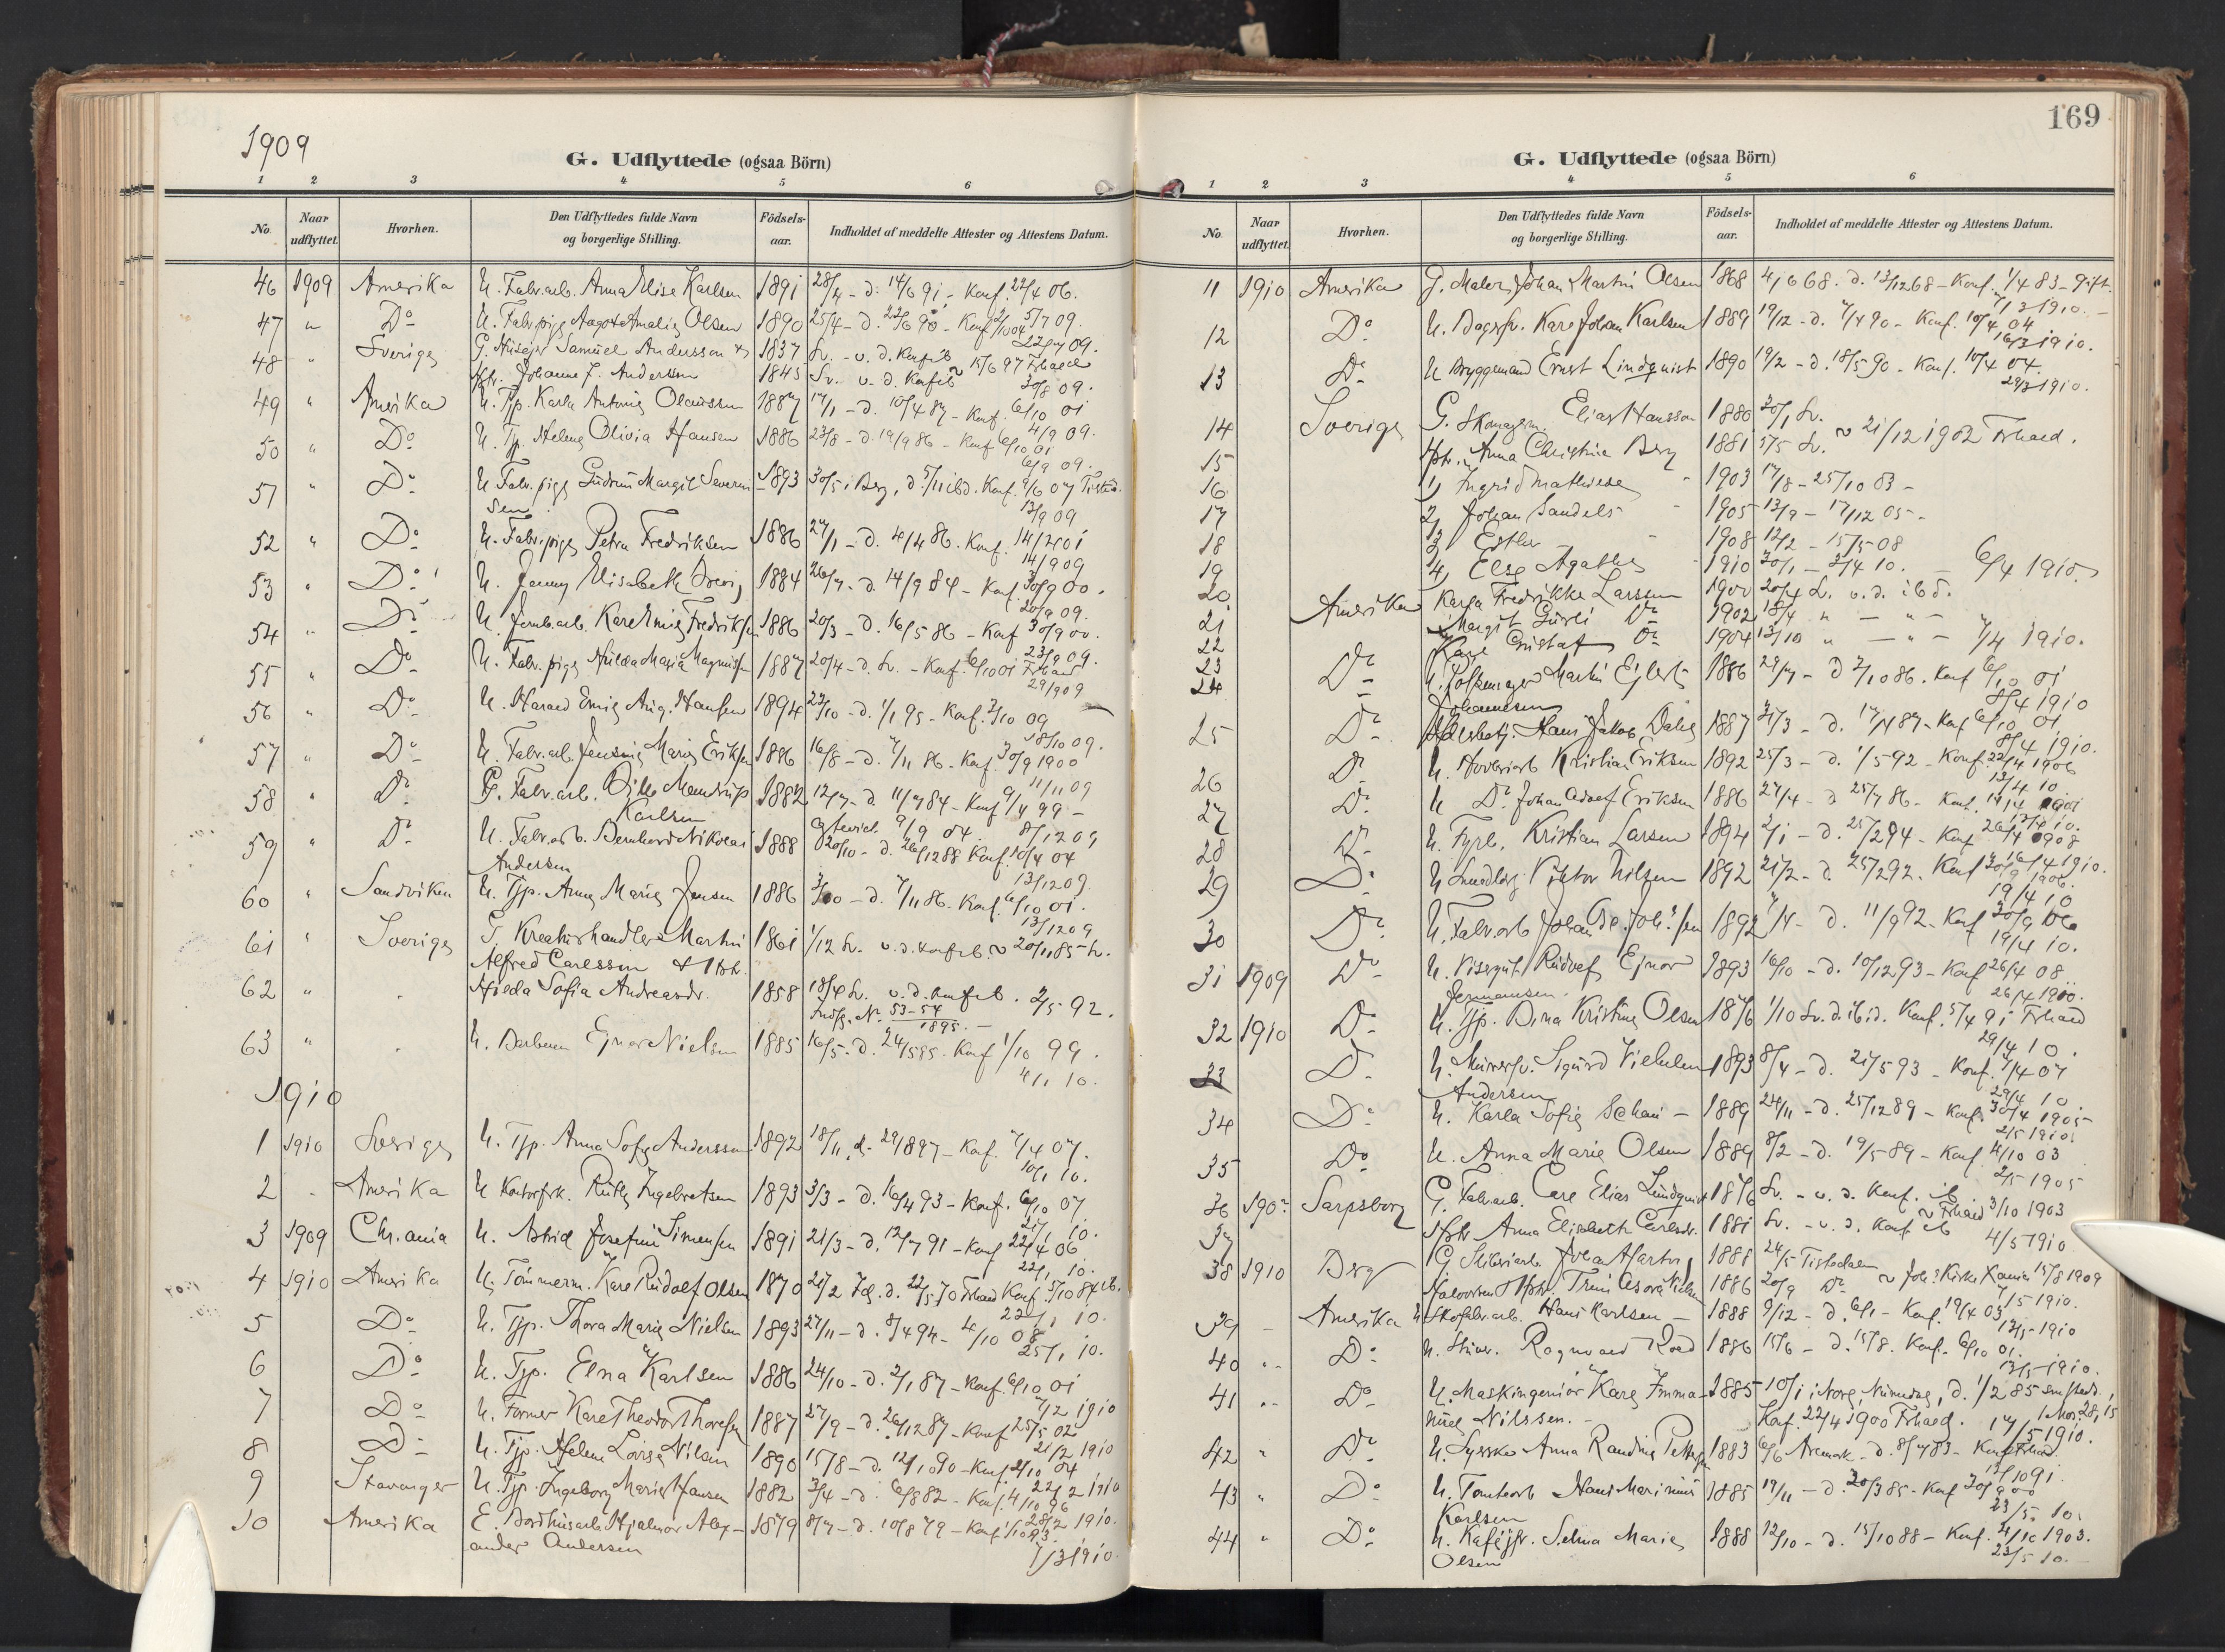 1909
G. Udflyttede (ogsaa Börn)
1 2 3 4 5 6
No. Naar udflyttet. Hvorhen. Den Udflyttedes fulde Navn og borgerlige Stilling. Födsels-aar. Indholdet af meddelte Attester og Attestens Datum.
46 1909 Amerika U. Fabr.arb. Anna Elise Karlsen 1891 28/4 - d. 14/6 91 - Konf. 22/4 06.
5/7 09.
47 " Do U. Fabr.pige Aagot Amalie Olsen 1890 25/4 - d. 22/6 90 - Konf. 2/10 04
22/7 09.
48 " Sverige G. Huseier Samuel Andersson & 1837 Sv. - v. d. Konf. ib ~ 15/6 97 Frhald
Hstr. Johanne J. Andersen 1845 Sv. v. d. Konf. ib 30/8 09.
49 " Amerika U. Tjp. Karla Antonie Olaussen 1887 17/1 - d. 10/4 87 - Konf. 6/10 01
4/9 09.
50 " Do U. Tjp. Helene Olivia Hansen 1886 23/8 - d. 19/9 86 - Konf. 6/10 01
6/9 09.
51 " Do U. Fabr.pige Gudrun Margit Severin- 1893 30/5 i Berg, d. 5/11 ibd. Konf. 9/6 07 Tisted.
sen 13/9 09
52 " Do U. Fabr.pige Petra Fredriksen 1886 27/1 - d. 4/4 86. Konf. 14/4 01
14/9 09
53 " Do U. Jenny Elisabeth 1884 26/7 - d. 14/9 84 - Konf. 30/9 00.
20/9 09.
54 " Do U. Jernb.arb. Karl Emil Fredriksen 1886 20/3 - d. 16/5 86 - Konf. 30/9 00.
23/9 09.
55 " Do U. Fabr.pige Hulda Maria Magnussen 1887 20/4 - d. Sv. - Konf. 6/10 01 Frhald
29/9 09
56 " Do U. Harald Emil Aug. Hansen 1894 22/10 - d. 1/1 95 - Konf. 3/10 09
18/10 09.
57 " Do U. Fabr.arb. Jensine Marie Eriksen 1886 16/8 - d. 7/11 86 - Konf. 30/9 1900
11/11 09
58 " Do G. Fabr.arb. Ditlev Mandrup 1882 12/7 - d. 11/7 84 - Konf. 9/4 99 -
Karlsen 9/9 04. 8/12 09
59 " Do U. Fabr.arb. Bernhard Nikolai 1888 20/10 - d. 26/12 88 Konf. 10/4 04
Andersen 13/12 09.
60 " Sandviken U. Tjp. Anna Marie Jensen 1886 3/10 - d. 7/11 86. Konf. 6/10 01.
13/12 09
61 " Sverige G. Kreaturhandler Martin 1861 1/12 Sv. v. d. Konf. ib. ~ 20/11 85 Sv.
Alfred Carlsson & Hstr.
62 " . Hilda Sofia Andreasdr. 1858 18/4 Sv. v. d. Konf. ib. 2/5 92.
Indfl. No 53-54 1895.
63 " . U. Barberer Ejnar Nielsen 1885 16/5 - d. 24/5 85. Konf. 1/10 99.
4/1 10.
1910
1 1910 Sverige U. Tjp. Anna Sofie Andersson 1892 18/11, d. 29/8 97 - Konf. 7/4 07.
10/1 10.
2 - Amerika U. Kontorfrk. Ruth Ingebretsen 1893 3/3 - d. 16/4 93 - Konf. 6/10 07
21/1 10.
3 1909 Chr.ania U. Astrid Josefine Simensen 1891 21/3 - d. 12/7 91 - Konf. 22/4 06
22/1 10.
4 1910 Amerika U. Tömmerm. Karl Rudolf Olsen 1870 21/2 Id. d. 22/5 70 Frhald Konf. 5/10 84 ib.
22/1 10.
5 Do U. Tjp. Thora Marie Nielsen 1893 27/11 - d. 8/4 94 - 4/10 08
25/1 10.
6 Do U. Tjp. Elna Karlsen 1886 24/10 - d. 2/1 87 - Konf. 6/10 01
7/2 1910
7 Do U. Former Karl Theodor Thoresen 1887 27/9 - d. 26/12 87 - Konf. 25/5 02
21/2 1910
8 Do U. Tjp. Helen Lovise Nilsen 1890 15/8 - d. 12/10 90 - Konf. 2/10 04
22/2 1910
9 Stavanger U. Tjp. Ingeborg Marie Hansen 1882 3/4 - d. 6/8 82 - Konf. 4/10 96
28/2 1910.
10 Amerika E. Bordhusarb. Hjalmar Alex- 1879 8/7 - d. 10/8 79 - Konf. 1/10 93
ander Andersen 1/3 1910.
169
G. Udflyttede (ogsaa Börn)
1 2 3 4 5 6
No. Naar udflyttet. Hvorhen. Den Udflyttedes fulde Navn og borgerlige Stilling. Födsels-aar. Indholdet af meddelte Attester og Attestens Datum.
11 1910 Amerika G. Maler Johan Martin Olsen 1868 4/6 68. d. 13/12 68 - Konf. 1/4 83 - gift.
1/3 1910.
12 Do U. Bagersv. Karl Johan Karlsen 1889 19/12 - d. 7/4 90 - Konf. 10/4 04
16/3 1910.
13 Do U. Bryggemand Ernst Lindquist 1890 19/2 - d. 18/5 90 - Konf. 10/4 04.
29/3 1910.
14 Sverige G. Skomagerm. Elias Hansson 1880 30/1 Sv.
15 Hstr. Anna Christine Berg 1881 5/5 Sv. ~ 21/12 1902 Frhald.
16 1, Ingrid Mathilde 1903 17/8 - 25/10 03 -
17 2, Johan Sandels 1905 13/9 - 17/12 05 -
18 3, Esther 1908 12/2 - 15/5 08
19 4, Else Agathe 1910 30/1 - 3/4 10. - 6/4 1910.
20 Amerika Karla Fredrikke Larssen 1900 20/4 S. v. d. ibd.
21 Margit Gurli Do 1902 18/4 " - " -
22 Karl Gustaf Do 1904 13/10 " - " - 7/4 1910.
23
24 Do U. Martin Ejlert 1886 29/7 - d. 3/10 86. Konf. 6/10 01
Johannessen 8/4 1910
25 Do Hans Jakob Dahl 1887 31/3 - d. 17/4 87 - Konf. 6/10 01,
8/4 1910.
26 Do U. Kristian Eriksen 1892 25/3 - d. 1/5 92 - Konf. 22/4 1906
13/4 10
27 Do U. Do Johan Adolf Eriksen 1886 27/4 - d. 25/7 86 - Konf. 14/4 1901
13/4 10.
28 Do U. Fyrb. Kristian Larsen 1894 2/1 - d. 25/2 94 - Konf. 26/4 1908
16/4 1910.
29 Do U. Viktor Nilsen 1892 21/2 - d. 25/2 92. Konf. 30/9 1906.
19/4 10
30 Do U. Fabr.arb. Johan 1892 7/4 - d. 11/9 92 - Konf. 30/9 06
19/4 10.
31 1909 Do U. Visergut Rudolf Ejnar 1893 16/10 - d. 10/12 93 - Konf. 26/4 08
Hermansen. 26/4 1910.
32 1910 Do U. Tjp. Dina Kristine Olsen 1876 1/10 Sv. d. ibid. Konf. 5/4 91 Frhald
29/4 10.
33 Do U. Murersv. Sigurd Vilhelm 1893 8/4 - d. 21/5 93 - Konf. 7/4 07
Andersen 29/4 10
34 Do U. Karla Sofie Schau - 1889 24/11 - d. 25/12 89 - Konf. 30/4 1905
2/5 1910.
35 Do U. Anna Marie Olsen 1889 8/2 - d. 19/5 89 - Konf. 4/10 03
2/5 1905
36 190? Sarpsborg G. Fabr.arb. Carl Elias Lindquist 1876 Sv. - v. d. Konf. ib ~ Frhald 3/10 1903
37 Hstr. Anna Elisabeth Carlsdr. 1881 Sv. - v. d. Konf. ib 4/5 1910
38 1910 Berg G. Sliberiarb. Johan Martin 1888 24/5 Tistedalen
Halvorsen & Hstr. Trine Aslora Nilsen 1886 20/9 Do ~ Joh.s Kirke Krania 15/8 1909
7/5 1910.
39 - Amerika U. Skofabr.arb. Hans Karlsen - 1888 9/12 - d. 6/1 - Konf. 19/4 03
12/5 1910
40 " Do U. Stuer. Ragnvald Roed 1886 15/6 - d. 15/8. Konf. 6/10 01.
13/5 1910.
41 " Do U. Maskingeniör Karl Imma- 1885 10/1 i Norg, Numedal, d. 1/2 85 smsteds,
nuel Nilssen. - Konf. 22/4 1900 Frhald. 17/5 1910.
42 " Do U. Syerske Anna Randine Pettersen 1883 6/6 Aremark - d. 8/7 83 - Konf. Frhald
43 " Do U. Tomtearb. Hans Marinius 1885 19/11 - d. 20/3 85 - Konf. 30/9 00
Karlsen 23/5 10.
44 " Do U. Kaféjfr. Selma Marie 1888 12/10 - d. 15/10 88 - Konf. 4/10 1903.
Olsen 23/5 10.